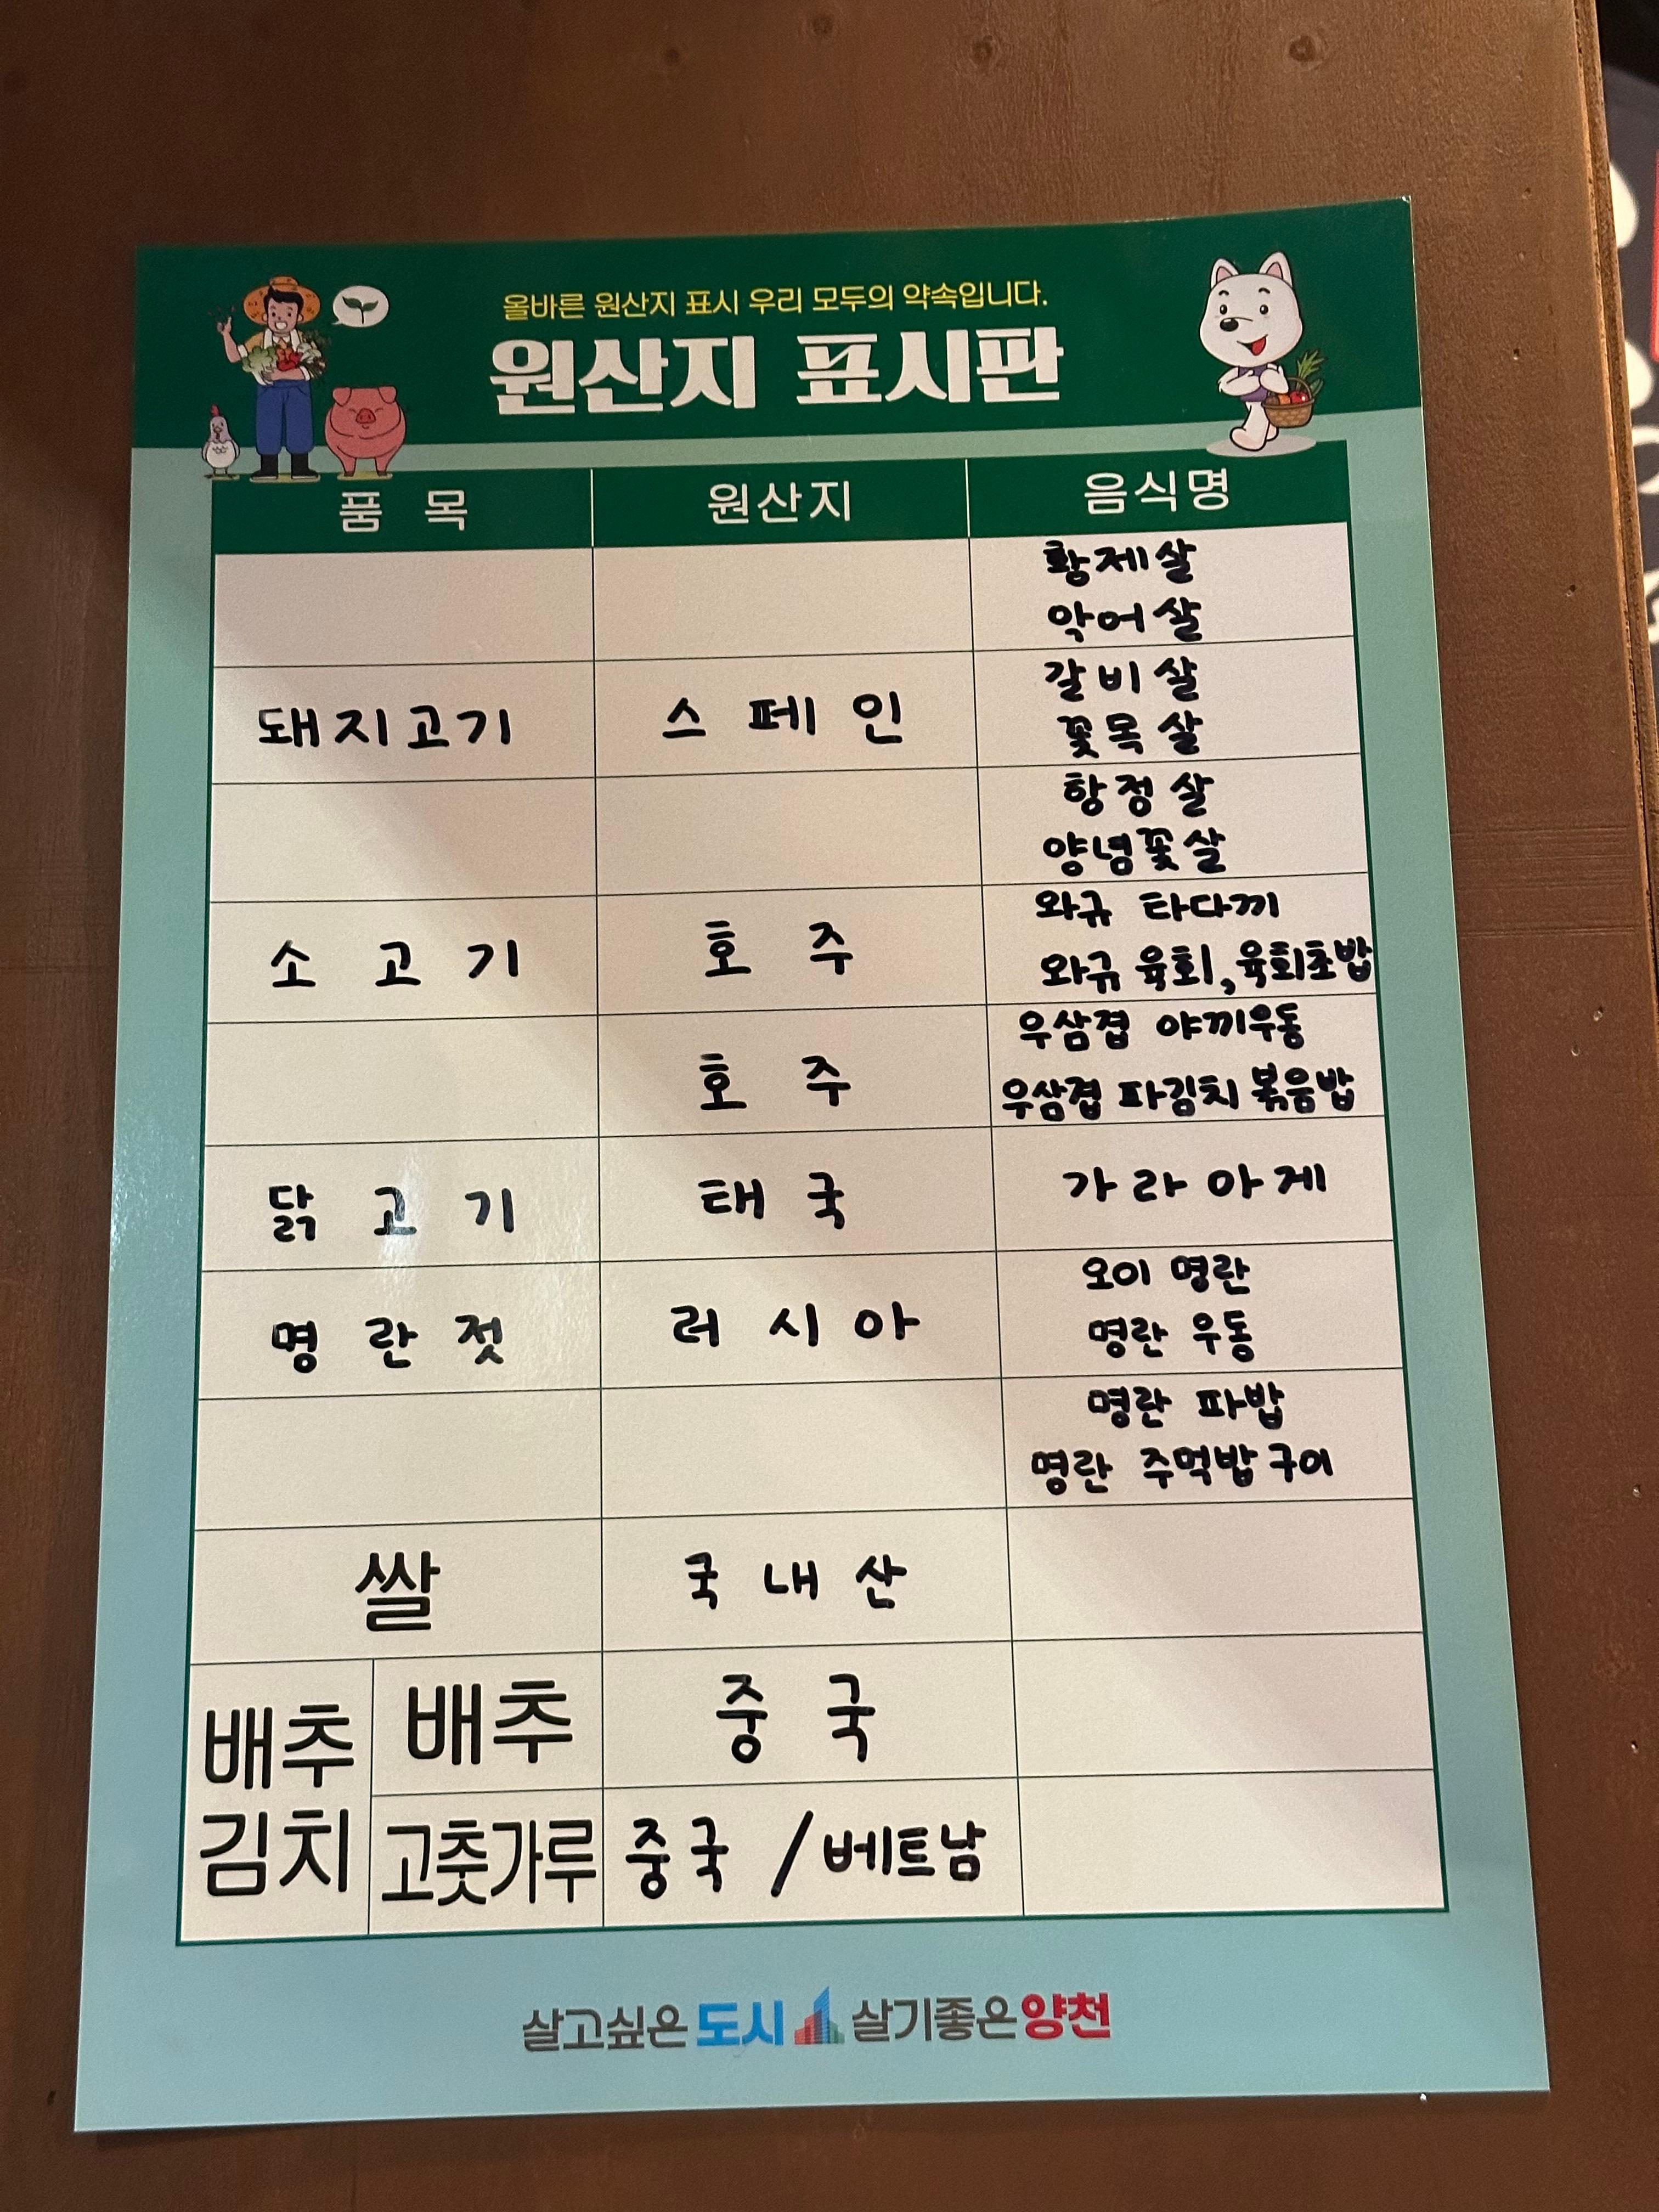 올바른 원산지 표시 우리 모두의 약속입니다.
원산지 표시판
품 목 원산지 음식명
황제살
악어살
돼지고기 스페인 갈비살
꽃목살
항정살
양념꽃살
소고기 호주 와규 타다끼
와규 육회, 육회초밥
호주 우삼겹 야끼우동
우삼겹 파김치 볶음밥
닭고기 태국 가라아게
명란젓 러시아 오이 명란
명란 우동
명란 파밥
명란 주먹밥 구이
쌀 국내산
배추김치 배추 중국
고춧가루 중국 / 베트남
살고싶은 도시 살기좋은 양천